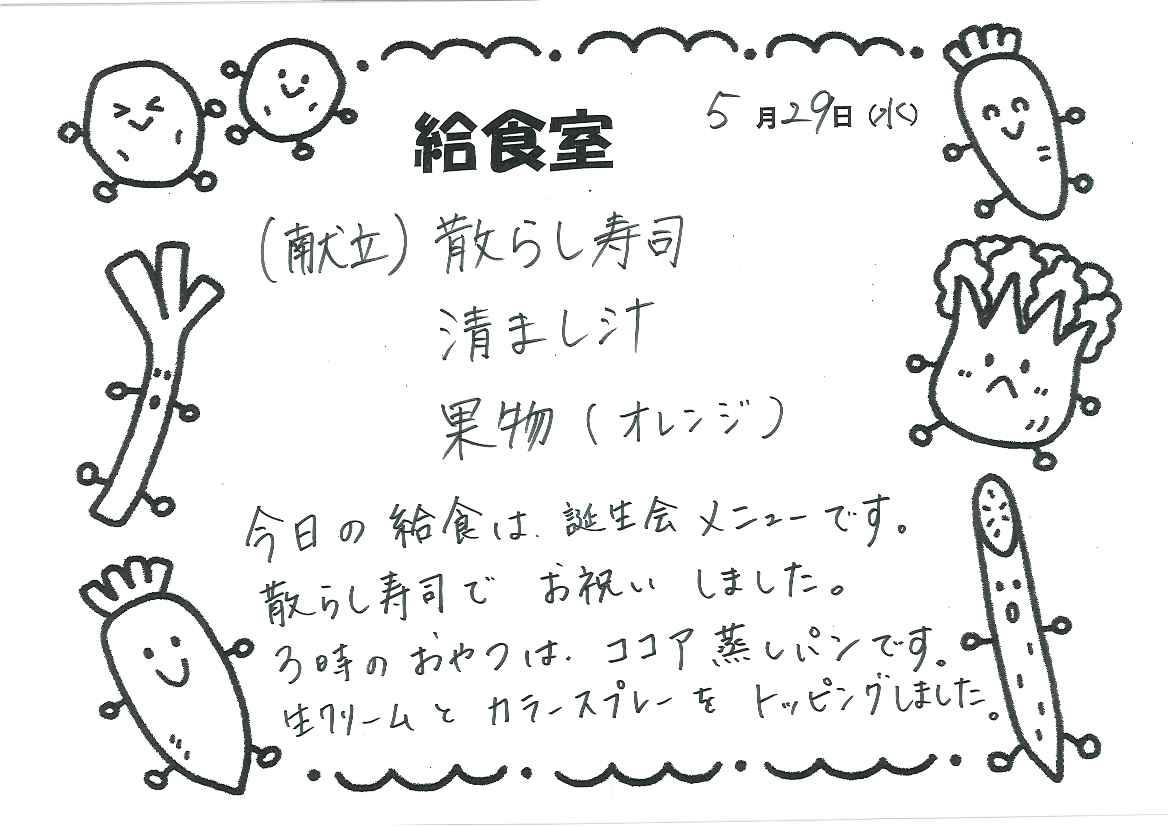 給食室
5月29日(水)
(献立)散らし寿司
清まし汁
果物(オレンジ)
今日の給食は、誕生会メニューです。
散らし寿司で お祝い しました。
3時のおやつは、ココア蒸しパンです。
生クリームと カラースプレーを トッピングしました。